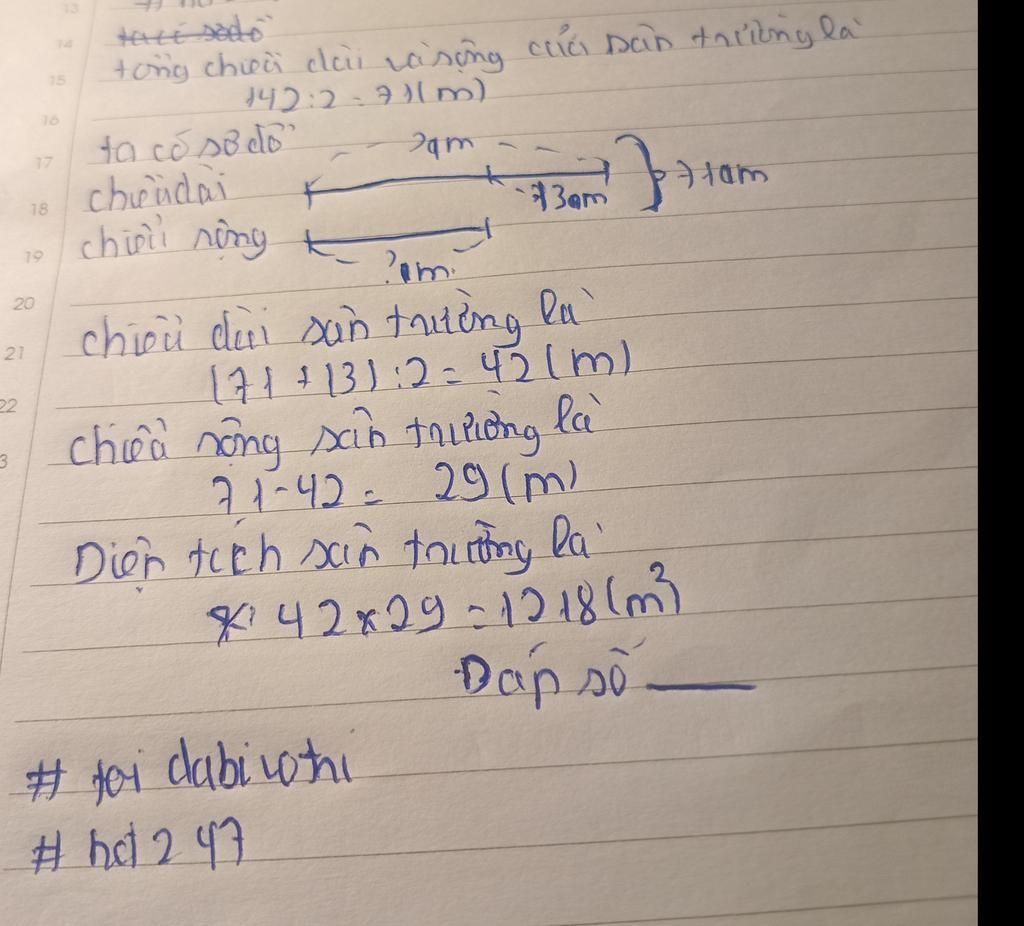 ta có sơ đồ
tổng chiều dài và rộng của sân trường là
142:2=71(m)
ta có sơ đồ
?m
chiều dài
13m
71m
chiều rộng
?m
chiều dài sân trường là
(71+13):2=42(m)
chiều rộng sân trường là
71-42= 29(m)
Diện tích sân trường là
42x29=1218(m²)
Đáp số
# toi dabi
# hd247